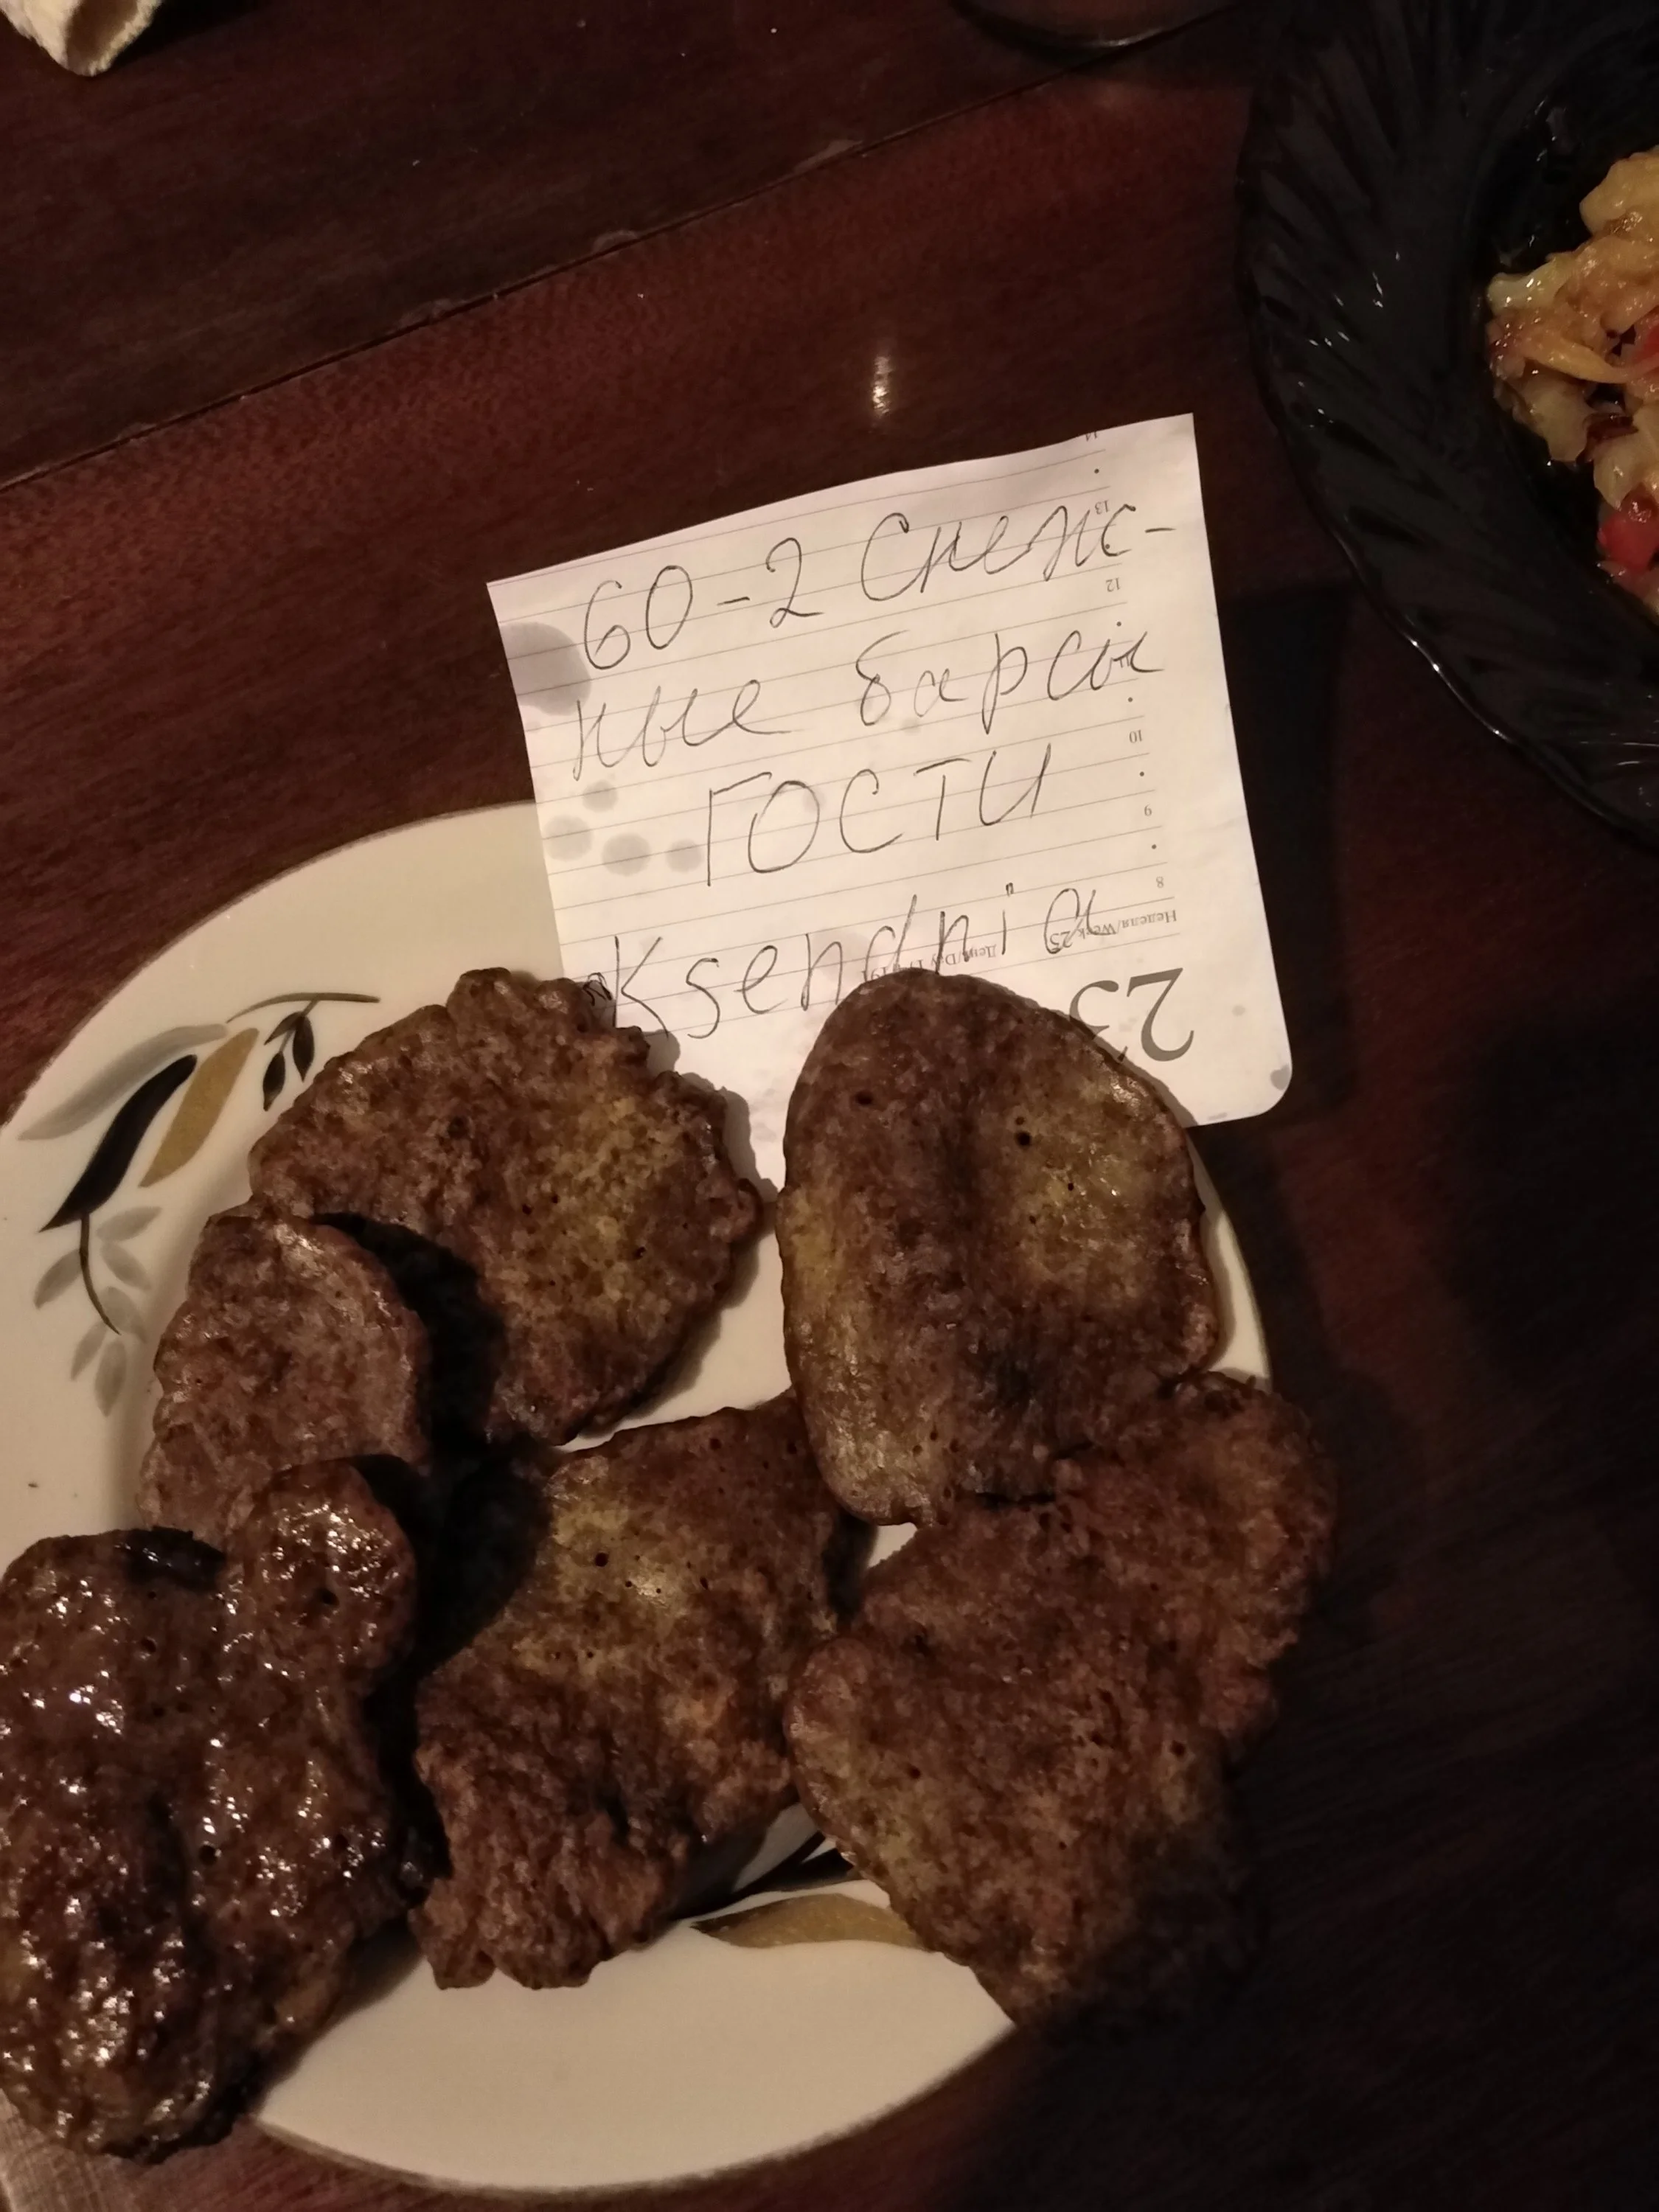 60-2 Снеж-
ные барсы
ГОСТИ
Ksendnia
14
13
12
11
10
9
8
Неделя/Week 25
День/Day
23